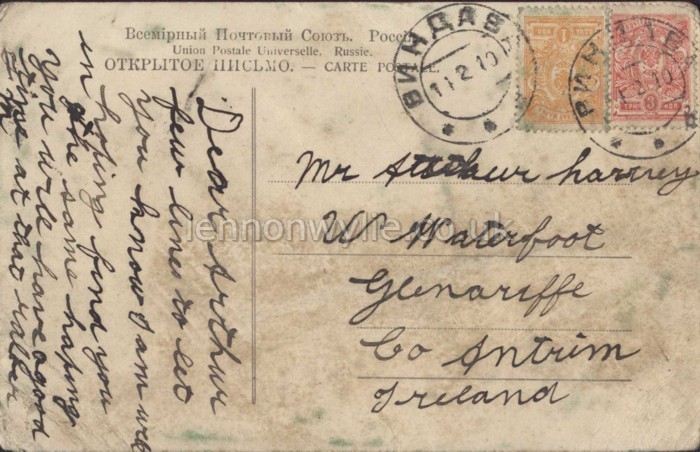 Всемірный Почтовый Союзъ. Россія
Union Postale Universelle. Russie.
ОТКРЫТОЕ ПИСЬМО. — CARTE POSTALE.
ВИНДАВА
11 2 10
1
3
ВИНДАВА
11 2 10
Mr Arthur harvey
W Waterfoot
Glenariffe
Co Antrim
Ireland
Dear Arthur
few lines to let
you know I am well
in hoping find you
the same hoping
you will have a good
time at that
lennonwylie.co.uk